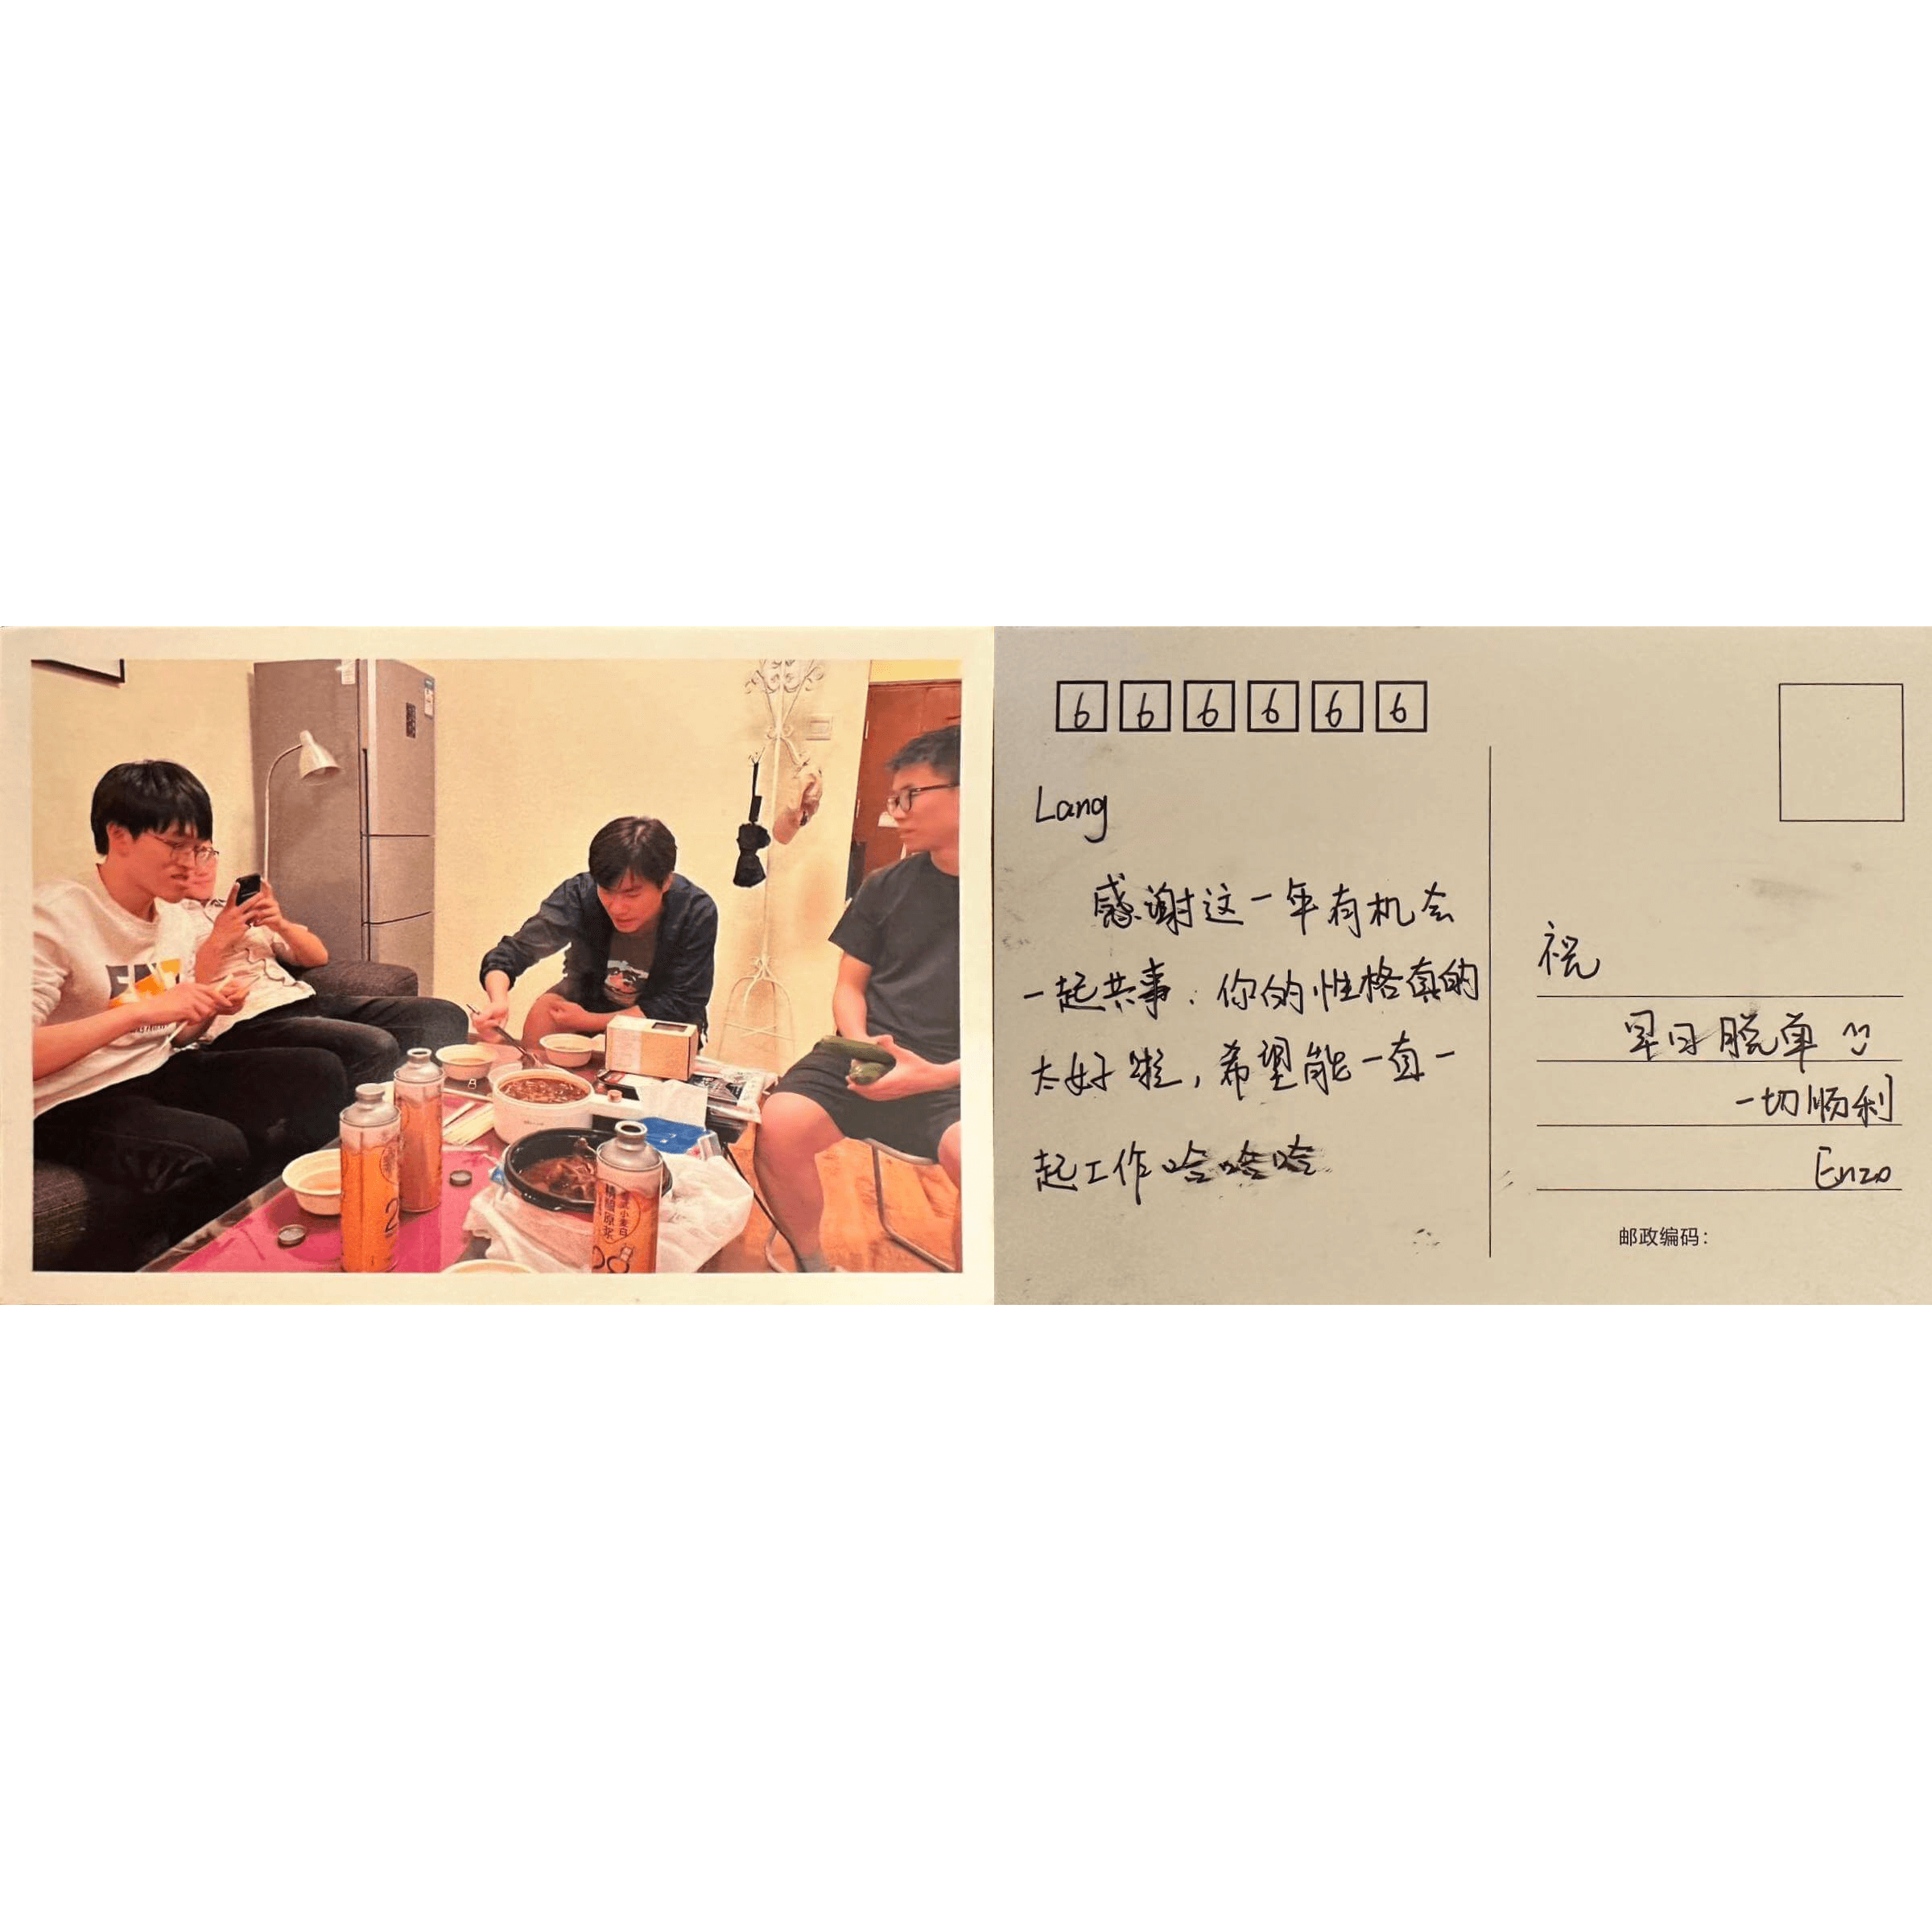 精酿原浆
小麦白
2
6 6 6 6 6 6
Lang
感谢这一年有机会
一起共事. 你的性格真的
太好啦, 希望能一直一
起工作哈哈哈
祝
早日脱单
一切顺利
Enzo
邮政编码: